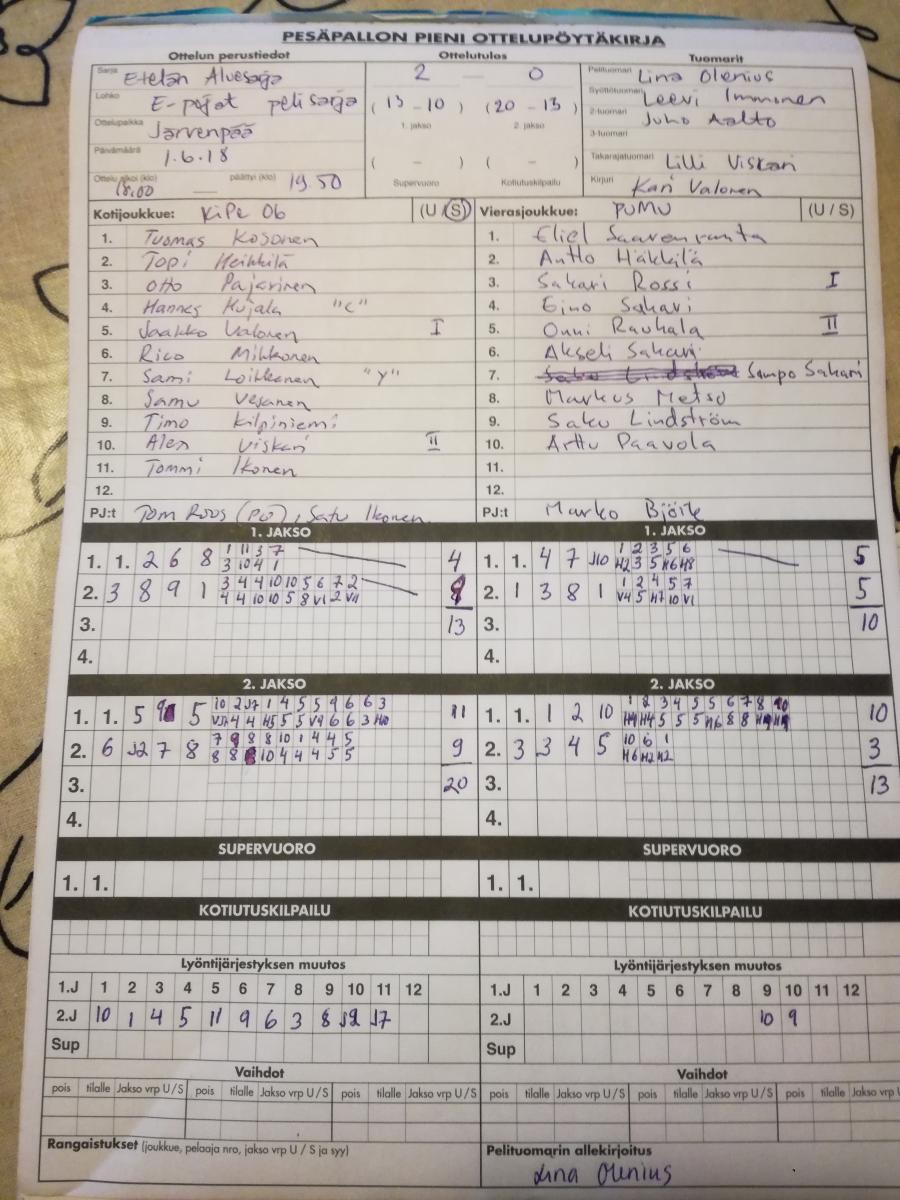 PESÄPALLON PIENI OTTELUPÖYTÄKIRJA
Ottelun perustiedot Ottelutulos Tuomarit
Sarja Etelän Aluesarja 2 — 0 Pelituomari Lina Olenius
Lohko E-pojat pelisarja (13 - 10) (20 - 13) Syöttötuomari Leevi Imminen
Ottelupaikka Järvenpää 1. jakso 2. jakso 2-tuomari Juho Aalto
3-tuomari
Päivämäärä 1.6.18 ( - ) ( - ) Takarajatuomari Lilli Viskari
Ottelu alkoi (klo) 18.00 — päättyi (klo) 19.50 Supervuoro Kotiutuskilpailu Kirjuri Kari Valonen
Kotijoukkue: KiPe 06 (U / S) Vierasjoukkue: PUMU (U / S)
1. Tuomas Kosonen 1. Eliel Saarenranta
2. Topi Heikkilä 2. Antto Häkkilä
3. Otto Pajarinen 3. Sakari Rossi I
4. Hannes Kujala "C" 4. Eino Sakari
5. Jaakko Valonen I 5. Onni Rauhala II
6. Rico Mihkonen 6. Akseli Sakari
7. Sami Loikkanen "Y" 7. Sampo Sakari
8. Samu Vesanen 8. Markus Metso
9. Timo Kilpiniemi 9. Saku Lindström
10. Alex Viskari II 10. Arttu Paavola
11. Tommi Ikonen 11.
12. 12.
PJ:t Tom Roos (PJ), Satu Ikonen PJ:t Marko Björk
1. JAKSO 1. JAKSO
1. 1. 2 6 8 1 11 3 7 4 1. 1. 4 7 J10 1 2 3 5 6 5
3 10 4 1 H2 3 5 H6 H8
2. 3 8 9 1 3 4 4 10 10 5 6 7 2 9 2. 1 3 8 1 1 2 4 5 7 5
4 4 10 10 5 8 V1 2 V11 V4 5 H7 10 V1
3. 13 3. 10
4. 4.
2. JAKSO 2. JAKSO
1. 1. 5 9 5 10 2 J7 1 4 5 5 9 6 6 3 11 1. 1. 1 2 10 1 2 3 4 5 5 6 7 8 10 10
4 4 H5 5 5 V9 6 6 3 H10 H4 H4 5 5 5 H6 8 8
2. 6 J2 7 8 7 9 8 8 10 1 4 4 5 9 2. 3 3 4 5 10 6 1 3
8 8 10 4 4 4 5 5 H6 H2 H2
3. 20 3. 13
4. 4.
SUPERVUORO SUPERVUORO
1. 1. 1. 1.
KOTIUTUSKILPAILU KOTIUTUSKILPAILU
Lyöntijärjestyksen muutos Lyöntijärjestyksen muutos
1.J 1 2 3 4 5 6 7 8 9 10 11 12 1.J 1 2 3 4 5 6 7 8 9 10 11 12
2.J 10 1 4 5 11 9 6 3 8 J2 J7 2.J 10 9
Sup Sup
Vaihdot Vaihdot
pois tilalle Jakso vrp U/S pois tilalle Jakso vrp U/S pois tilalle Jakso vrp U/S pois tilalle Jakso vrp U/S pois tilalle Jakso vrp U/S pois tilalle Jakso vrp
Rangaistukset (joukkue, pelaaja nro, jakso vrp U / S ja syy) Pelituomarin allekirjoitus
Lina Olenius